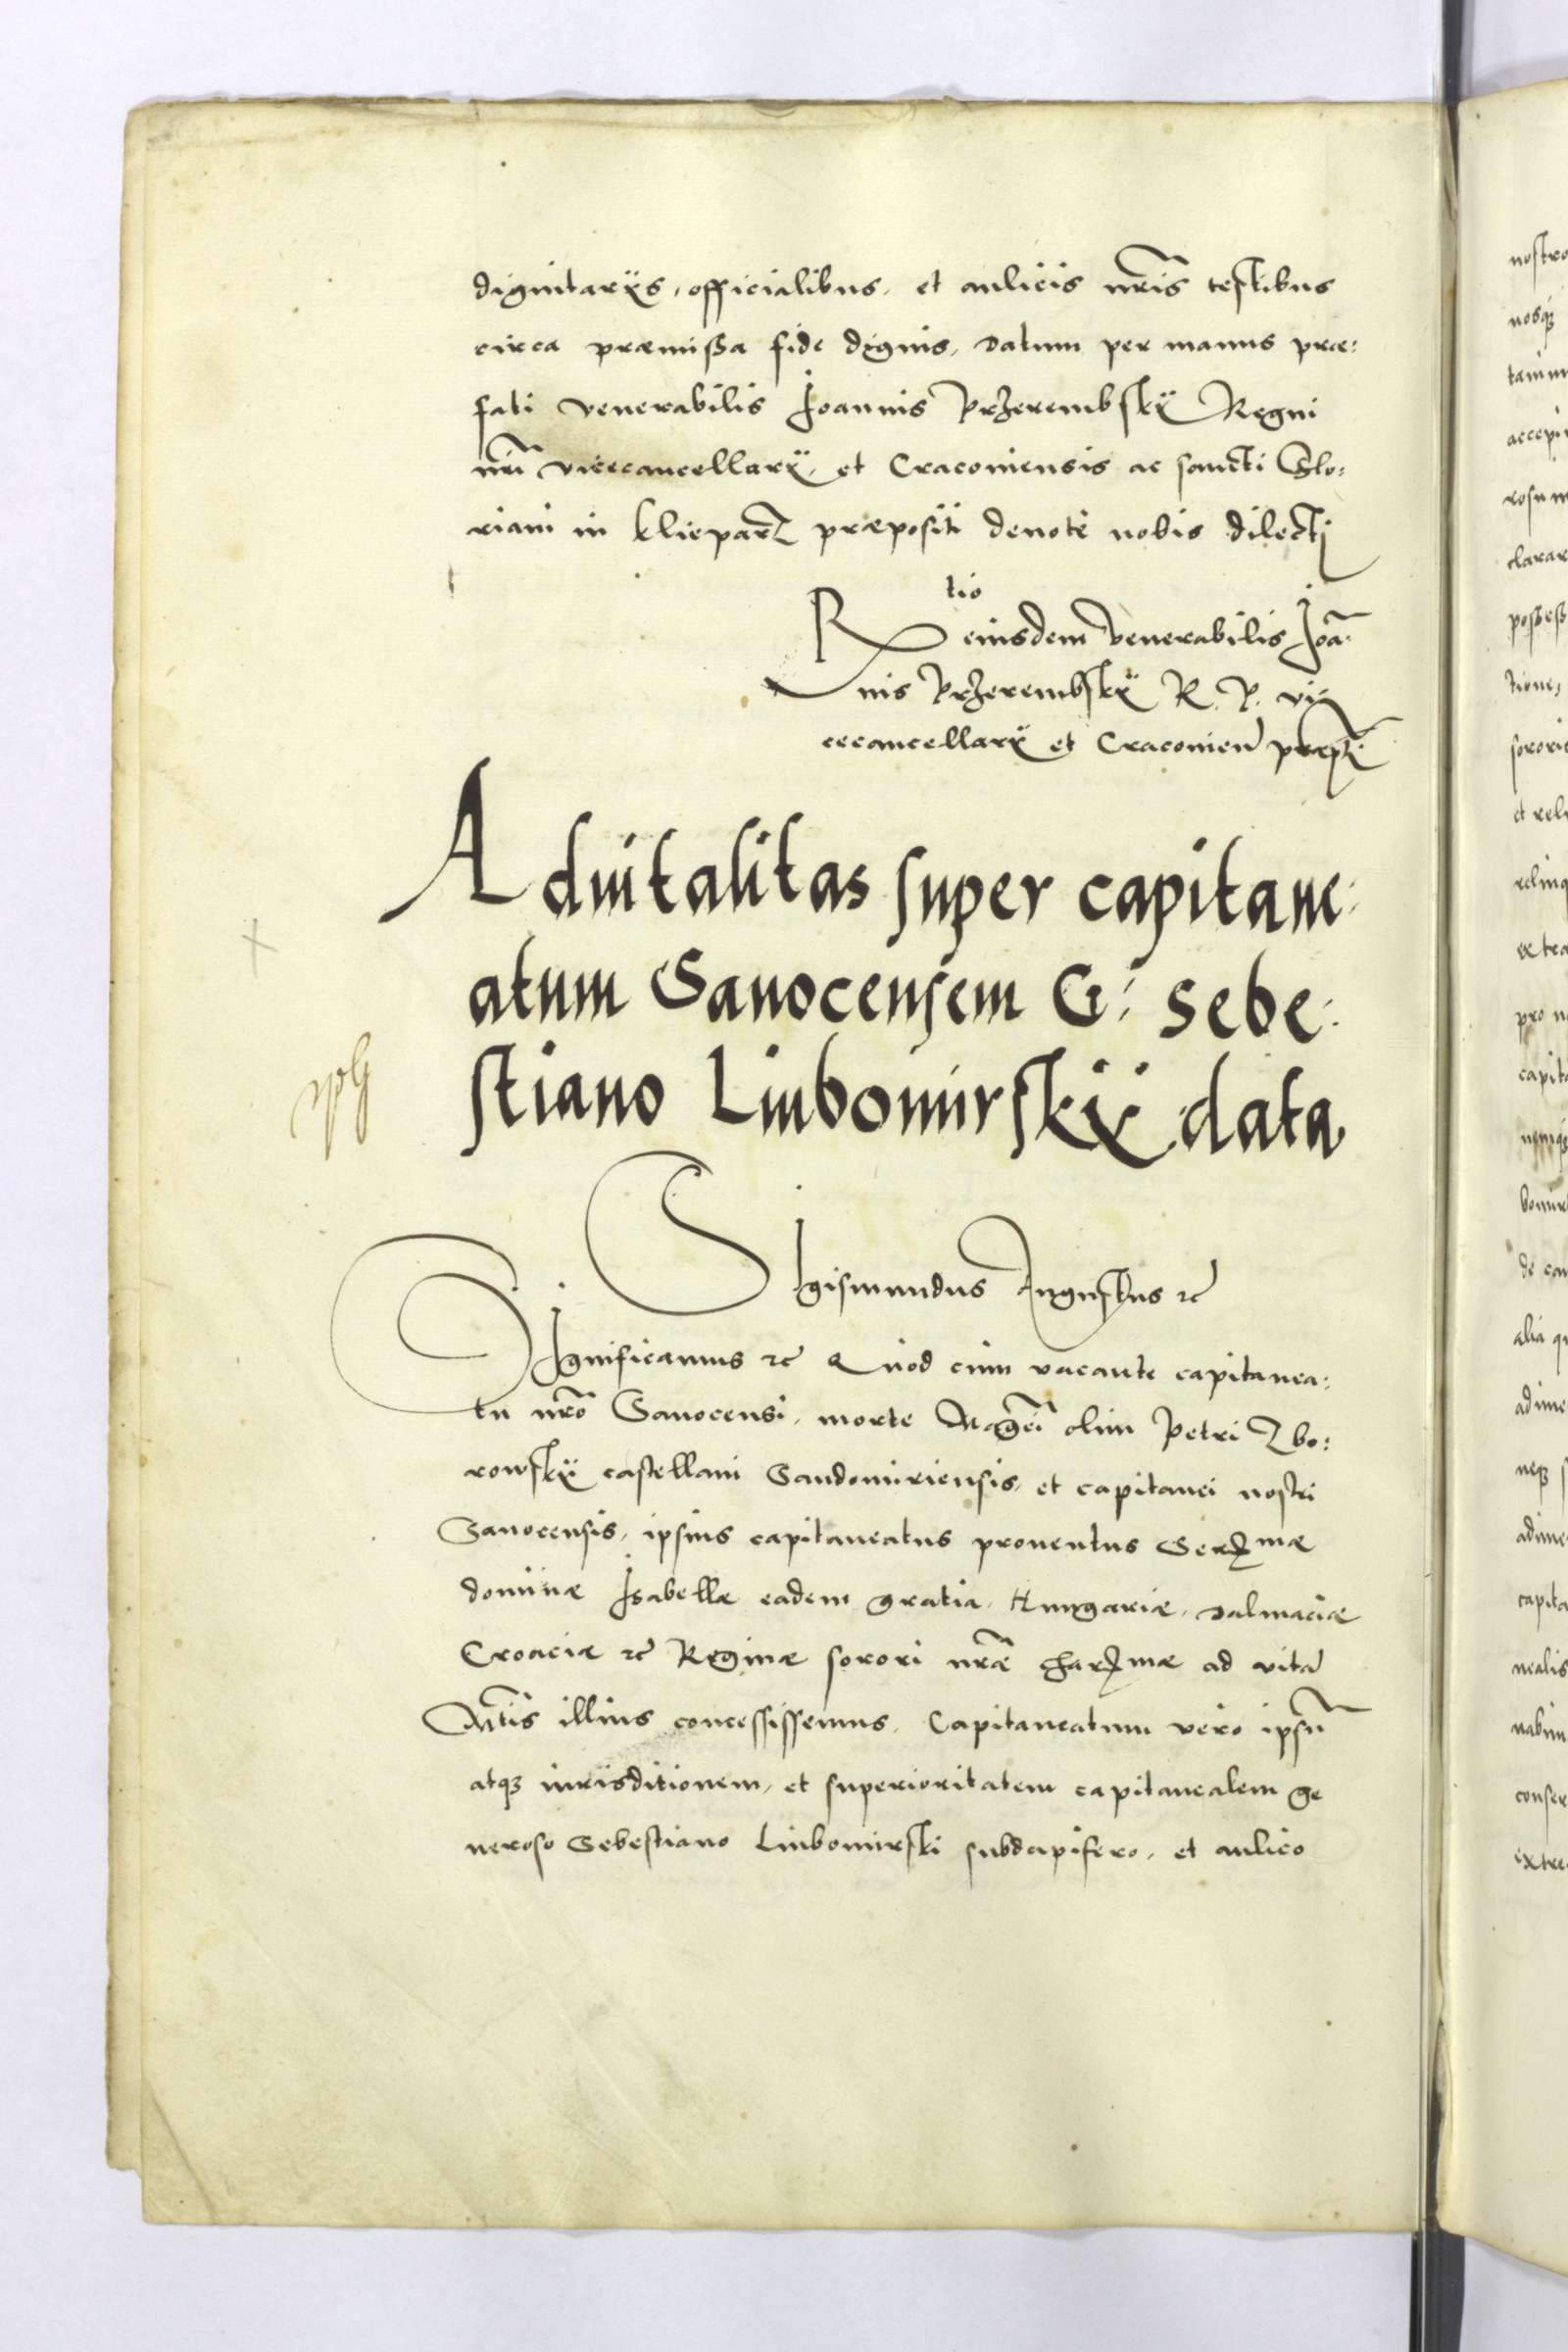 dignitarÿs, officialibus, et aulicis nr̃is testibus
circa præmissa fide dignis, Datum per manus præ:
fati venerabilis Joannis Przerembskÿ Regni
nr̃i vicecancellarÿ, et Cracoviensis ac sancti Flo:
riani in Klieparz præpositi devote nobis dilecti
R tio eiusdem Venerabilis Joã:
nis Przerembskÿ R. P. vi:
cecancellarÿ et Cracovień præpti
Advitalitas super capitane:
atum Sanocensem G: Sebe:
stiano Liubomirskÿ data
Sigismundus Augustus ꝛc̃
Significamus ꝛc̃ Quod cum vacante capitanea:
tu nr̃o Sanocensi, morte Mag̃ci olim Petri Zbo:
rowskÿ castellani Sandomiriensis, et capitanei nostri
Sanocensis, ipsius capitaneatus proventus Serꝫmæ
dominæ Isabellæ eadem gratia, Hungariæ, Dalmaciæ
Croaciæ ꝛc̃ Reginæ sorori nr̃æ charꝫmæ ad vitã
Mt̃is illius concessissemus, Capitaneatum vero ipsũ
atqꝫ iurisditionem, et superioritatem capitanealem ge
neroso Sebestiano Liubomirski subdapifero, et aulico
nostro
nobqꝫ
accepi
rosum
clarar
tione,
sororis
et reli
relinq
extra
pro n
capita
bomir
de ca
alia q
adime
neqꝫ
adime
capita
nealis
conser
extre